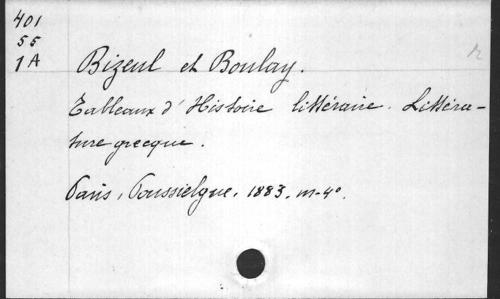 401
55
1A
Bizeul et Boulay.
Tableaux d'Histoire littéraire. Littéra-
ture grecque.
Paris, Poussielgue, 1883, in-4º.